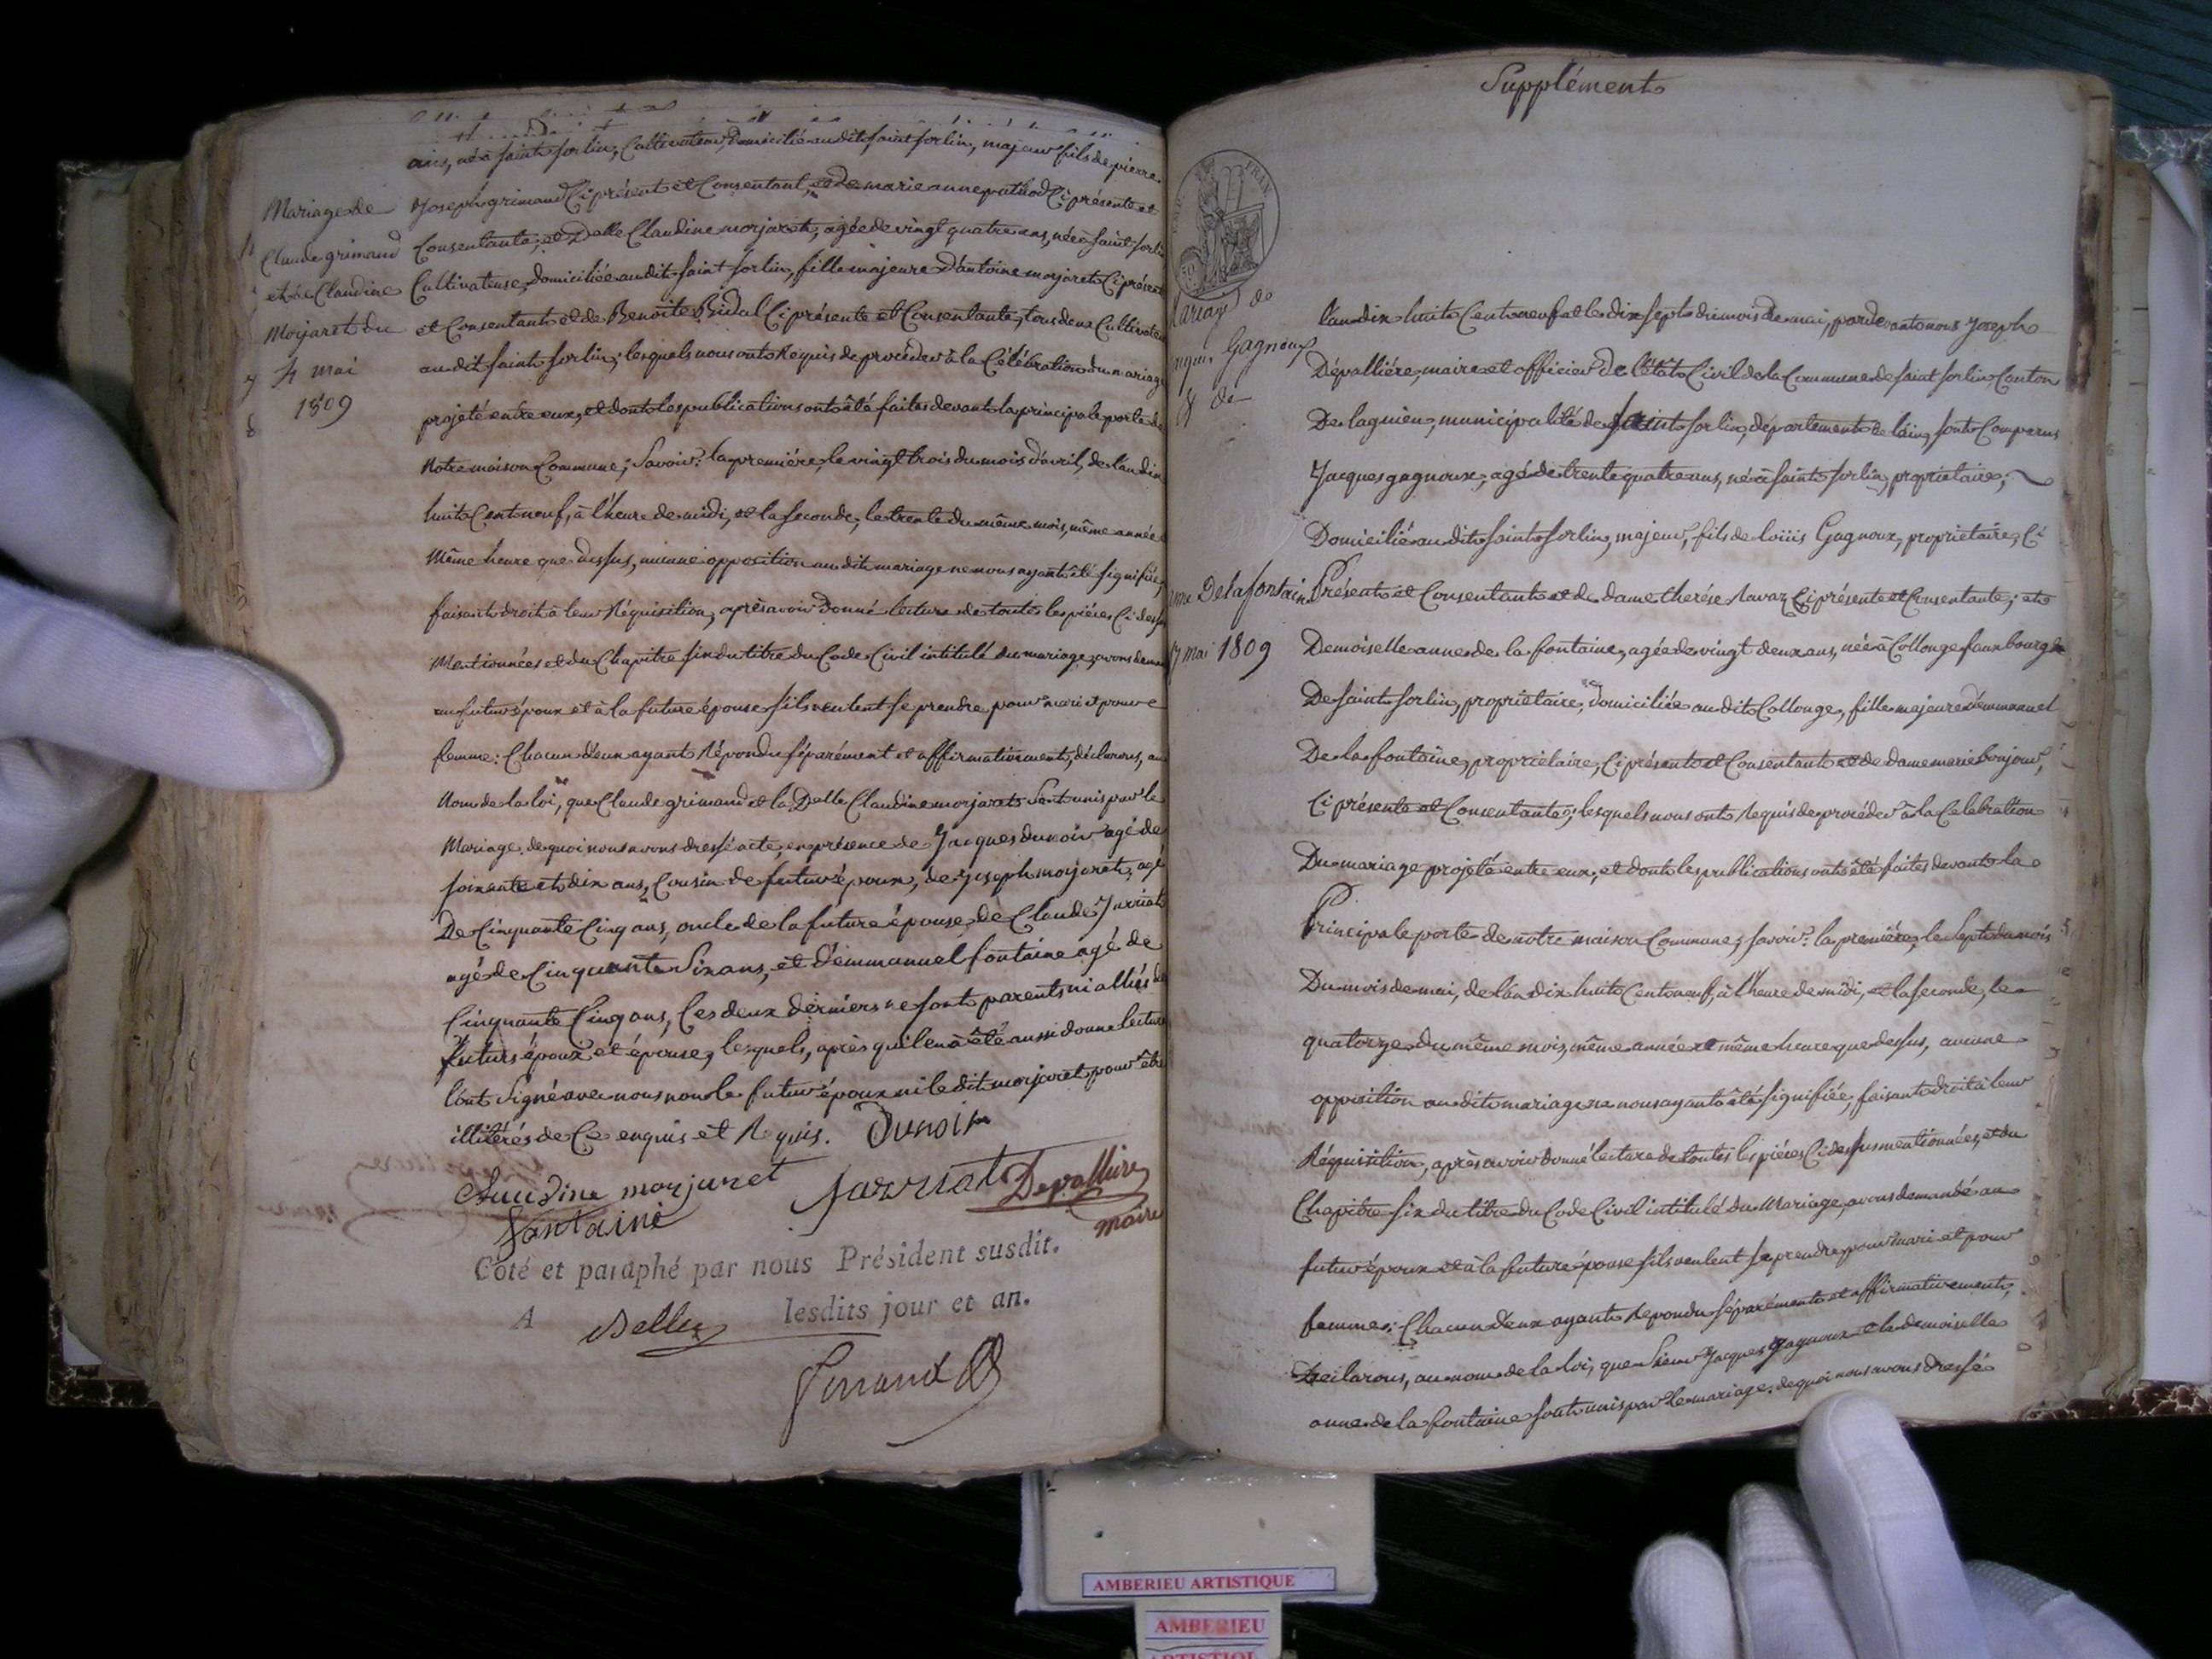 ans, né à saint sorlin, Cultivateur, Domicilié au dit saint sorlin, majeur fils de pierre
Mariage de
Claude grimand
et de Claudine
Morjaret du
4 mai
1809
Joseph grimand Ci présent et Consentant, et de marie anne puthod Ci présente et
Consentante, et Delle Claudine morjaret, agée de vingt quatre ans, née à saint sorlin
Cultivateuse, Domiciliée au dit saint sorlin, fille majeure d'antoine morjaret Ci présent
et Consentant et de Benoite Bidal Ci présente et Consentante, tous deux Cultivateurs
au dit saint sorlin; lesquels nous ont Requis de procéder à la Célébration du mariage
projeté entre eux, et dont les publications ont été faites devant la principale porte de
Notre maison Commune; Savoir: la premiére, le vingt trois du mois d'avril, de l'an dix
huit Cent neuf, à l'heure de midi, et la seconde, le trente du même mois, même année
Même heure que dessus, aucune opposition au dit mariage ne nous ayant été signifiée,
faisant droit à leur Réquisition, après avoir Donné lecture de toutes les piéces Ci dessus
Mentionnées et du Chapitre six du titre du Code Civil intitulé du mariage, avons demandé
au futur époux et à la future épouse s'ils veulent se prendre pour mari et pour
femme: Chacun d'eux ayant Répondu séparément et affirmativement, déclarons, au
Nom de la loi, que Claude grimand et la Delle Claudine morjaret Sont unis par le
Mariage. de quoi nous avons dressé acte, en présence de Jacques dunoir agé de
soixante et dix ans, Cousin de futur époux, de Joseph morjaret, agé
De Cinquante Cinq ans, oncle de la future épouse, de Claude Jarriat
agé de Cinquante Six ans, et d'emmanuel fontaine agé de
Cinquante Cinq ans, Ces deux dérniers ne sont parents ni alliés des
futurs époux et épouse, lesquels, après qu'il en à été aussi donné lecture
l'ont Signé avec nous non le futur époux ni le dit morjaret pour être
illitérés de Ce enquis et Requis. Dunoir
Claudine morjaret Jarriat Depalliere
fontaine maire
Coté et paraphé par nous Président susdit.
A Belley lesdits jour et an.
Supplément
FRAN.
Mariage de
Jacques Gagnoux
& de
anne Delafontaine
17 mai 1809
L'an dix huit Cent neuf et le dix sept du mois de mai, pardevant nous Joseph
Dépalliére, maire et officier de l'état Civil de la Commune de saint sorlin Canton
De lagnieu, municipalité de saint sorlin, département de l'ain, sont Comparus
Jacques gagnoux, agé de trente quatre ans, né à saint sorlin, propriétaire,
Domicilié au dit saint sorlin, majeur, fils de loüis Gagnoux, propriétaire, Ci
Présent et Consentant et de dame therése Ravaz Ci présente et Consentante; et
Demoiselle anne de la fontaine, agée de vingt deux ans, née à Collonge faux bourg
De saint sorlin, propriétaire, domiciliée au dit Collonge, fille majeure d'emmanuel
De la fontaine, propriétaire, Ci présent et Consentant et de dame marie bonjour,
Ci présente et Consentante; lesquels nous ont Requis de procéder à la Celebration
Du mariage projeté entre eux, et dont les publications ont été faites devant la
Principale porte de notre maison Commune; savoir: la premiére, le sept du mois
Du mois de mai, de l'an dix huit Cent neuf, à l'heure de midi, et la seconde, le
quatorze du même mois, même année et même heure que dessus, aucune
opposition au dit mariage ne nous ayant été signifiée, faisant droit à leur
Réquisition, après avoir Donné lecture de toutes les piéces Ci dessus mentionnées, et du
Chapitre six du titre du Code Civil intitulé du Mariage, avons demandé au
futur époux et à la future épouse s'ils veulent se prendre pour mari et pour
femme: Chacun d'eux ayant Repondu séparément et affirmativement,
Declarons, au nom de la loi, que Sieur Jacques gagnoux et la demoiselle
anne de la fontaine sont unis par le mariage. de quoi nous avons dressé
AMBERIEU ARTISTIQUE
AMBERIEU
ARTISTIQUE